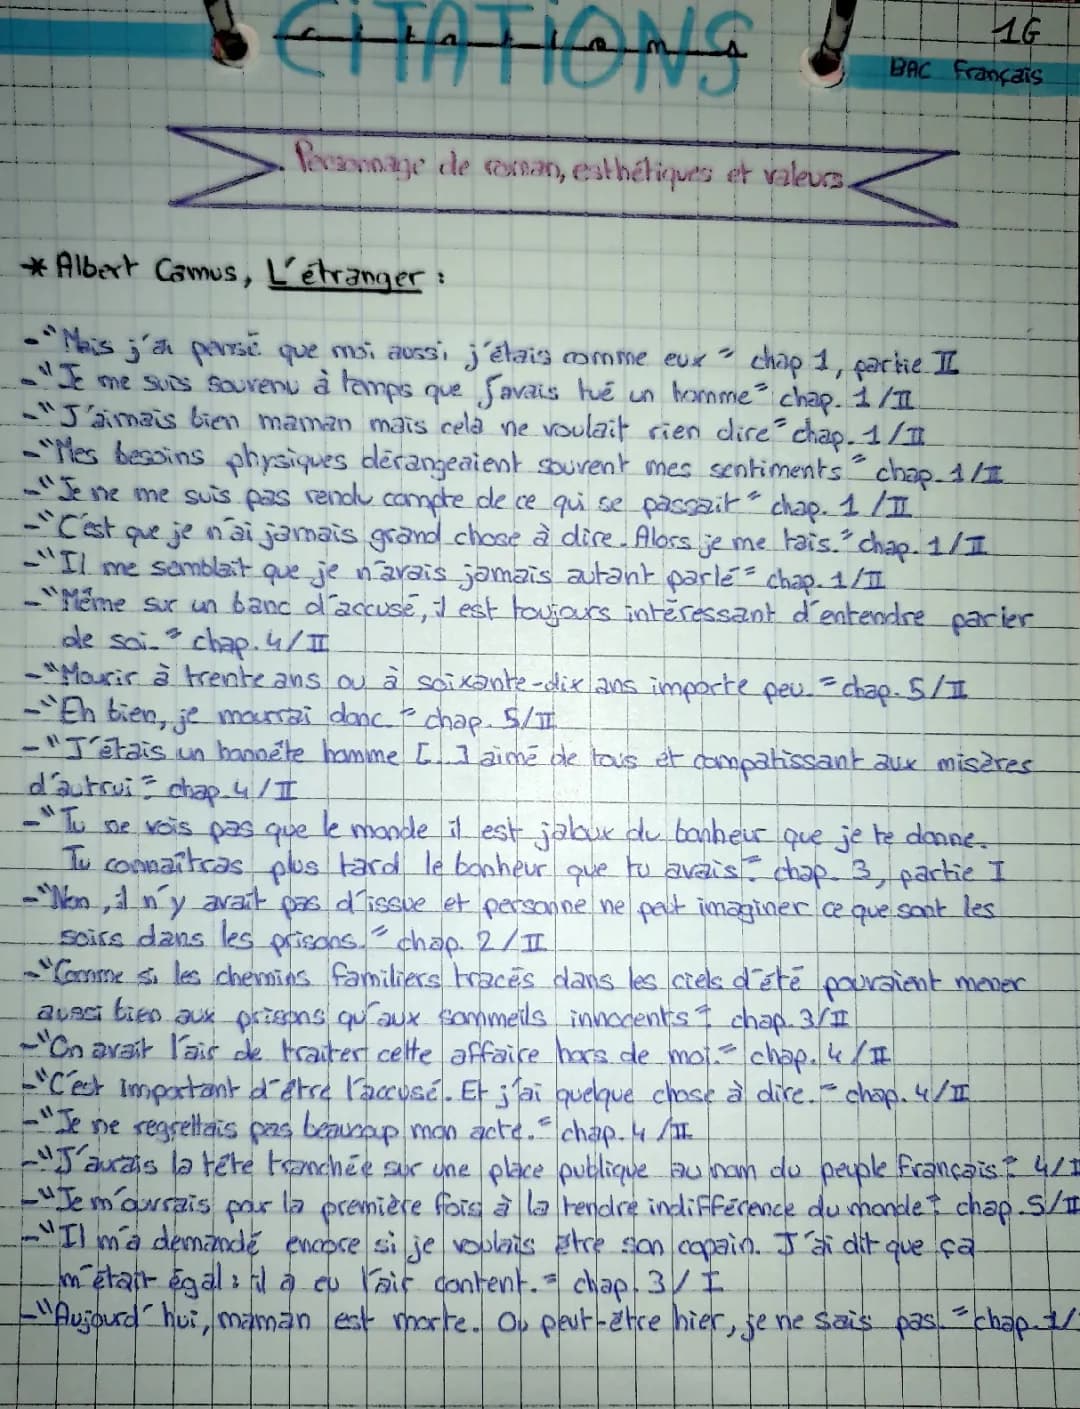 CITATIONS
citations
1G
BAC Français
Personnage de roman, esthétiques et valeurs.
* Albert Camus, L'étranger :
- "Mais j'ai pensé que moi aussi, j'étais comme eux" chap 1, partie II
- "Je me suis souvenu à temps que j'avais tué un homme" chap. 1/II
- "J'aimais bien maman mais cela ne voulait rien dire" chap. 1/II
- "Mes besoins physiques dérangeaient souvent mes sentiments" chap. 1/II
- "Je ne me suis pas rendu compte de ce qui se passait" chap. 1/II
- "C'est que je n'ai jamais grand chose à dire. Alors je me tais." chap. 1/II
- "Il me semblait que je n'avais jamais autant parlé" chap. 1/II
- "Même sur un banc d'accusé, il est toujours intéressant d'entendre parler
de soi." chap. 4/II
- "Mourir à trente ans ou à soixante-dix ans importe peu." chap. 5/II
- "Eh bien, je mourrai donc" chap. 5/II
- "J'étais un honnête homme [..] aimé de tous et compatissant aux misères
d'autrui" chap. 4/II
- "Tu ne vois pas que le monde il est jaloux du bonheur que je te donne.
Tu connaîtras plus tard le bonheur que tu avais." chap. 3, partie I
- "Non, il n'y avait pas d'issue et personne ne peut imaginer ce que sont les
soirs dans les prisons." chap. 2/II
- "Comme si les chemins familiers tracés dans les ciels d'été pouvaient mener
aussi bien aux prisons qu'aux sommeils innocents" chap. 3/II
- "On avait l'air de traiter cette affaire hors de moi." chap. 4/II
- "C'est important d'être l'accusé. Et j'ai quelque chose à dire." chap. 4/II
- "Je ne regrettais pas beaucoup mon acte." chap. 4/II
- "J'aurais la tête tranchée sur une place publique au nom du peuple Français" 4/I
- "Je m'ouvrais pour la première fois à la tendre indifférence du monde" chap. 5/II
- "Il m'a demandé encore si je voulais être son copain. J'ai dit que ça
m'était égal : il a eu l'air content." chap. 3/I
- "Aujourd'hui, maman est morte. Ou peut-être hier, je ne sais pas" chap. 1/